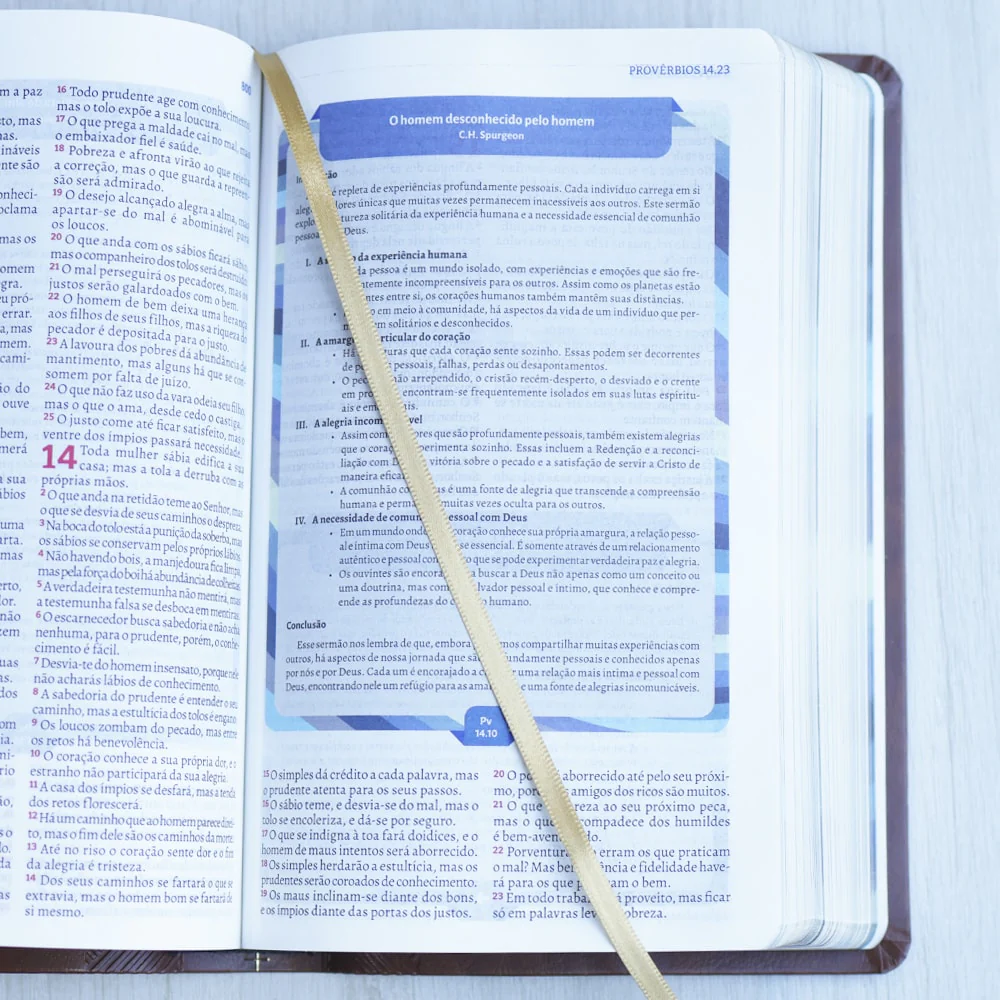 m a paz
to, mas
nas.
ináveis
nte são
onheci-
oclama
mas os
omem
egra.
eu pró-
errar.
a, mas
mem.
cami-
ão do
ouve
bem,
merá
a sua
ábios
uma
arta.
mas
erto,
dor.
não
zem
uas
as.
dos
om
ia.
ni-
rio
ão,
s o
lo.
da
as
800
16 Todo prudente age com conhecimento,
mas o tolo expõe a sua loucura.
17 O que prega a maldade cai no mal, mas
o embaixador fiel é saúde.
18 Pobreza e afronta virão ao que rejeita
a correção, mas o que guarda a repreen-
são será admirado.
19 O desejo alcançado alegra a alma, mas
apartar-se do mal é abominável para
os loucos.
20 O que anda com os sábios ficará sábio,
mas o companheiro dos tolos será destruído.
21 O mal perseguirá os pecadores, mas os
justos serão galardoados com o bem.
22 O homem de bem deixa uma herança
aos filhos de seus filhos, mas a riqueza do
pecador é depositada para o justo.
23 A lavoura dos pobres dá abundância de
mantimento, mas alguns há que se con-
somem por falta de juízo.
24 O que não faz uso da vara odeia seu filho,
mas o que o ama, desde cedo o castiga.
25 O justo come até ficar satisfeito, mas o
ventre dos ímpios passará necessidade.
14 Toda mulher sábia edifica a sua
casa; mas a tola a derruba com as
próprias mãos.
2 O que anda na retidão teme ao Senhor, mas
o que se desvia de seus caminhos o despreza.
3 Na boca do tolo está a punição da soberba, mas
os sábios se conservam pelos próprios lábios.
4 Não havendo bois, a manjedoura fica limpa,
mas pela força do boi há abundância de colheitas.
5 A verdadeira testemunha não mentirá, mas
a testemunha falsa se desboca em mentiras.
6 O escarnecedor busca sabedoria e não acha
nenhuma, para o prudente, porém, o conhe-
cimento é fácil.
7 Desvia-te do homem insensato, porque nele
não acharás lábios de conhecimento.
8 A sabedoria do prudente é entender o seu
caminho, mas a estultícia dos tolos é engano.
9 Os loucos zombam do pecado, mas entre
os retos há benevolência.
10 O coração conhece a sua própria dor, e o
estranho não participará da sua alegria.
11 A casa dos ímpios se desfará, mas a tenda
dos retos florescerá.
12 Há um caminho que ao homem parece direi-
to, mas o fim dele são os caminhos da morte.
13 Até no riso o coração sente dor e o fim
da alegria é tristeza.
14 Dos seus caminhos se fartará o que se
extravia, mas o homem bom se fartará de
si mesmo.
PROVÉRBIOS 14.23
O homem desconhecido pelo homem
C.H. Spurgeon
é repleta de experiências profundamente pessoais. Cada indivíduo carrega em si
ores únicas que muitas vezes permanecem inacessíveis aos outros. Este sermão
tureza solitária da experiência humana e a necessidade essencial de comunhão
pessoa Deus.
I. A da experiência humana
• a pessoa é um mundo isolado, com experiências e emoções que são fre-
ntemente incompreensíveis para os outros. Assim como os planetas estão
ntes entre si, os corações humanos também mantêm suas distâncias.
• o em meio à comunidade, há aspectos da vida de um indivíduo que per-
m solitários e desconhecidos.
II. A amarg rticular do coração
• Há uras que cada coração sente sozinho. Essas podem ser decorrentes
de p pessoais, falhas, perdas ou desapontamentos.
• O pec não arrependido, o cristão recém-desperto, o desviado e o crente
em pro encontram-se frequentemente isolados em suas lutas espiritu-
ais e em is.
III. A alegria incom vel
• Assim com ores que são profundamente pessoais, também existem alegrias
que o coraç perimenta sozinho. Essas incluem a Redenção e a reconci-
liação com D vitória sobre o pecado e a satisfação de servir a Cristo de
maneira efica
• A comunhão co us é uma fonte de alegria que transcende a compreensão
humana e perma muitas vezes oculta para os outros.
IV. A necessidade de comun essoal com Deus
• Em um mundo ond coração conhece sua própria amargura, a relação pesso-
al e íntima com Deus se essencial. É somente através de um relacionamento
autêntico e pessoal co o que se pode experimentar verdadeira paz e alegria.
• Os ouvintes são encoraja a buscar a Deus não apenas como um conceito ou
uma doutrina, mas com lvador pessoal e íntimo, que conhece e compre-
ende as profundezas do c o humano.
Conclusão
Esse sermão nos lembra de que, embora mos compartilhar muitas experiências com
outros, há aspectos de nossa jornada que são undamente pessoais e conhecidos apenas
por nós e por Deus. Cada um é encorajado a c uma relação mais íntima e pessoal com
Deus, encontrando nele um refúgio para as amar e uma fonte de alegrias incomunicáveis.
Pv
14.10
15 O simples dá crédito a cada palavra, mas
o prudente atenta para os seus passos.
16 O sábio teme, e desvia-se do mal, mas o
tolo se encoleriza, e dá-se por seguro.
17 O que se indigna à toa fará doidices, e o
homem de maus intentos será aborrecido.
18 Os simples herdarão a estultícia, mas os
prudentes serão coroados de conhecimento.
19 Os maus inclinam-se diante dos bons,
e os ímpios diante das portas dos justos.
20 O po aborrecido até pelo seu próxi-
mo, por amigos dos ricos são muitos.
21 O que reza ao seu próximo peca,
mas o qu ompadece dos humildes
é bem-aven do.
22 Porventura erram os que praticam
o mal? Mas be ência e fidelidade have-
rá para os que p am o bem.
23 Em todo traba á proveito, mas ficar
só em palavras lev obreza.